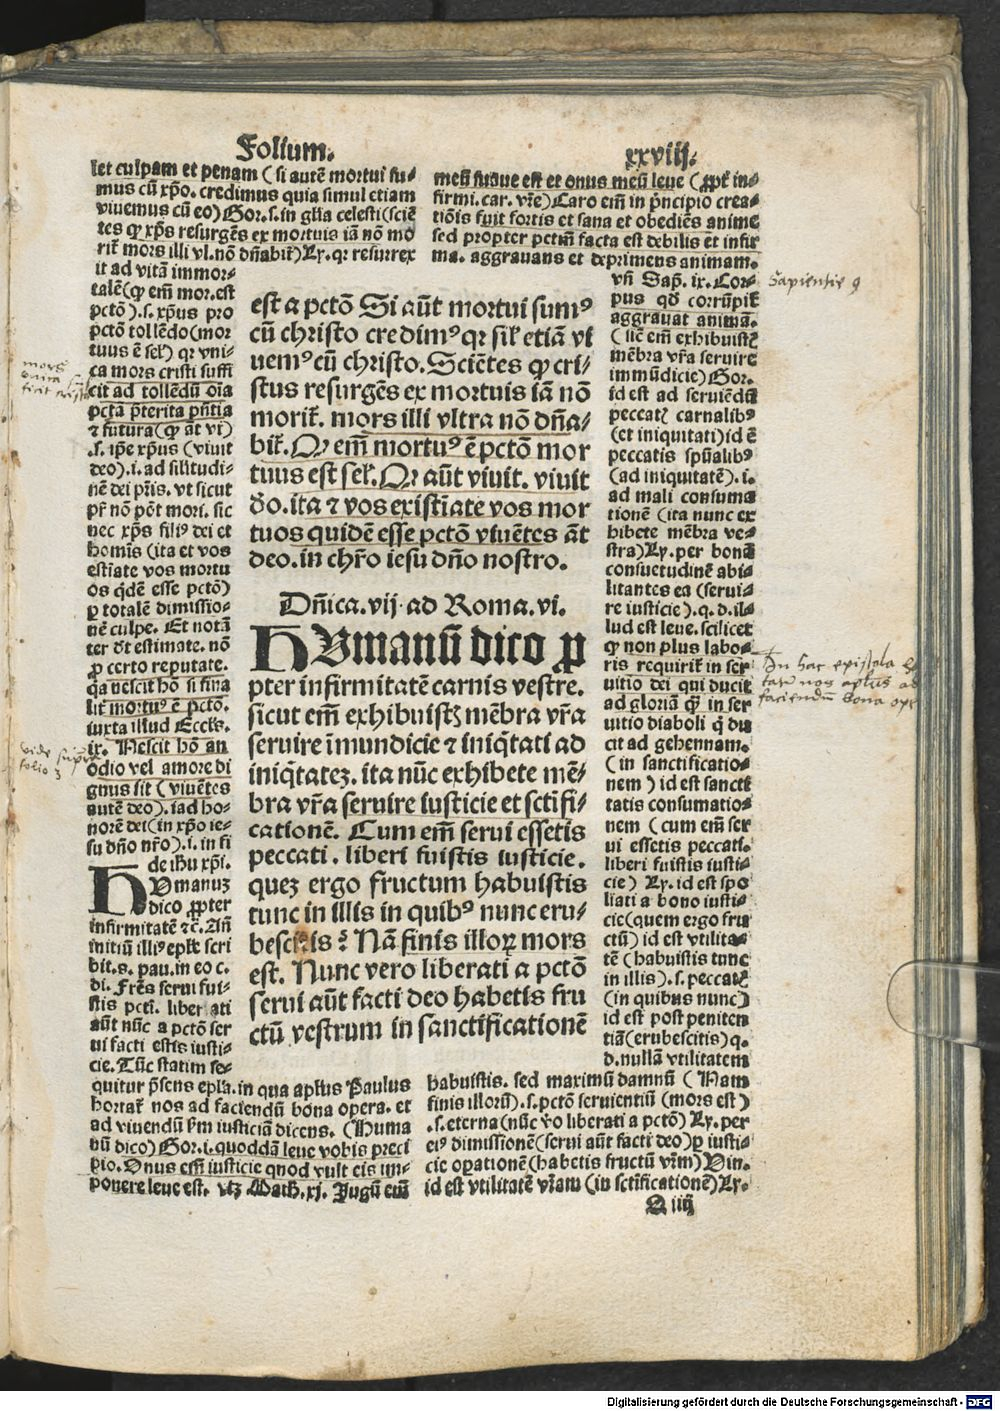 Folium.
xxviij.
let culpam et penam (si autē mortui su⸗
mus cū xp̄o. credimus quia simul etiam
viuemus cū eo) Gor. s. in gl̄ia celesti (sciē
tes qꝫ xp̄s resurgēs ex mortuis iā nō mo
rit̄ mors illi vl. nō dn̄abit̄) Ly. qꝛ resurrex
it ad vitā immor⸗
talē (qꝫ em̄ mor. est
pctō). s. xp̄us pro
pctō tollēdo (mor
tuus ē sel̄) qꝛ vni⸗
ca mors cristi suffi
cit ad tollēdū oīa
pctā p̄terita pn̄tia
⁊ futura (qꝫ āt vi)
.s. ip̄e xp̄us (viuit
deo). i. ad silitudi⸗
nē dei pr̄is. vt sicut
pr̄ nō pōt mori. sic
nec xp̄s filiꝰ dei et
homīs (ita et vos
estīate vos mortu
os qͥdē esse pctō)
ꝑ totalē dimissio⸗
nē culpe. Et notā
ter dr̄t estimate. nō
ꝓ certo reputate.
q̄a nescit hō si fina
lit̄ mortuꝰ ē pctō.
iuxta illud Eccl̄s.
ix. Nescit hō an
odio vel amore di
gnus sit (viuētes
autē deo). i ad ho⸗
norē dei (in xp̄o ie⸗
su dn̄o nr̄o). i. in fi
de ih̄u xp̄i.
HVmanuꝫ
dico ꝓpter
infirmitatē ⁊c̄. Añ
initiū illiꝰ epl̄e scri
bit. s. pau. in eo c.
di. Frēs serui fui⸗
stis pctī. liberati
aūt nūc a pctō ser
ui facti estis iusti⸗
cie. Tūc statim se⸗
quitur p̄sens epl̄a. in qua apl̄us Paulus
hortat̄ nos ad faciendū bona opera. et
ad viuendū sm̄ iusticiā dicens. (Huma
nū dico) Gor. i. quoddā leue vobis preci
pio. Onus em̄ iusticie quod vult eis im⸗
ponere leue est. vtꝫ Math. xj. Jugū em̄
est a pctō Si aūt mortui sumꝰ
cū christo credimꝰ qꝛ sil̄ etiā vi
uemꝰ cū christo. Sciētes qꝫ cri⸗
stus resurgēs ex mortuis iā nō
morit̄. mors illi vltra nō dn̄a⸗
bit̄. Qꝫ em̄ mortuꝰ ē pctō mor
tuus est sel̄. Qꝫ aūt viuit. viuit
dō. ita ⁊ vos existīate vos mor
tuos quidē esse pctō viuētes āt
deo. in chr̄o iesu dn̄o nostro.
Dn̄ica. vij. ad Roma. vi.
HVmanū dico ꝓ
pter infirmitatē carnis vestre.
sicut em̄ exhibuistꝫ mēbra vr̄a
seruire īmundicie ⁊ iniq̄tati ad
iniq̄tateꝫ. ita nūc exhibete mē⸗
bra vr̄a seruire iusticie et sctīfi⸗
cationē. Cum em̄ serui essetis
peccati. liberi fuistis iusticie.
queꝫ ergo fructum habuistis
tunc in illis in quibꝰ nunc eru⸗
bescitis? Nā finis illoꝝ mors
est. Nunc vero liberati a pctō
serui aūt facti deo habetis fru
ctū vestrum in sanctificationē
meū suaue est et onus meū leue (ꝓpt̄ in⸗
firmi. car. vr̄e) Caro em̄ in pn̄cipio crea⸗
tiōis fuit fortis et sana et obediēs anime
sed propter pctm̄ facta est debilis et infir
ma. aggrauans et deprimens animam.
vn̄ Sap̄. ix. Cor⸗
pus qd̄ corrūpit̄
aggrauat animā.
(sic̄ em̄ exhibuistꝫ
mēbra vr̄a seruire
immūdicie) Gor.
id est ad seruiēdū
peccatꝭ carnalibꝰ
(et iniquitati) id ē
peccatis spūalibꝰ
(ad iniquitatē). i.
ad mali consuma
tionē (ita nunc ex
hibete mēbra ve⸗
stra) Ly. per bonā
consuetudinē abi⸗
litantes ea (serui⸗
re iusticie). q. d. il⸗
lud est leue. scilicet
qꝫ non plus labo⸗
ris requirit̄ in ser
uitio dei qui ducit
ad gloriā qꝫ in ser
uitio diaboli q̄ du
cit ad gehennam.
(in sanctificatio⸗
nem) id est sancti
tatis consumatio⸗
nem (cum em̄ ser
ui essetis peccati.
liberi fuistis iusti⸗
cie) Ly. id est spo
liati a bono iusti⸗
cie (quem ergo fru
ctū) id est vtilita⸗
tē (habuistis tunc
in illis). s. peccatꝭ
(in quibus nunc)
id est post peniten
tiā (erubescitis) q.
d. nullā vtilitatem
habuistis. sed maximū damnū (Nam
finis illorū). s. pctō seruientiū (mors est)
.s. eterna (nūc v̄o liberati a pctō) Ly. per
eiꝰ dimissionē (serui aūt facti deo) ꝑ iusti⸗
cie oꝑationē (habetis fructū vr̄m) Vin.
id est vtilitatē vr̄am (in sctīficationē) Ly.
D iiij
mors
Sapientie 9
In hac epistola
faciendum bona ope
vide supra
folio 3
Digitalisierung gefördert durch die Deutsche Forschungsgemeinschaft - DFG